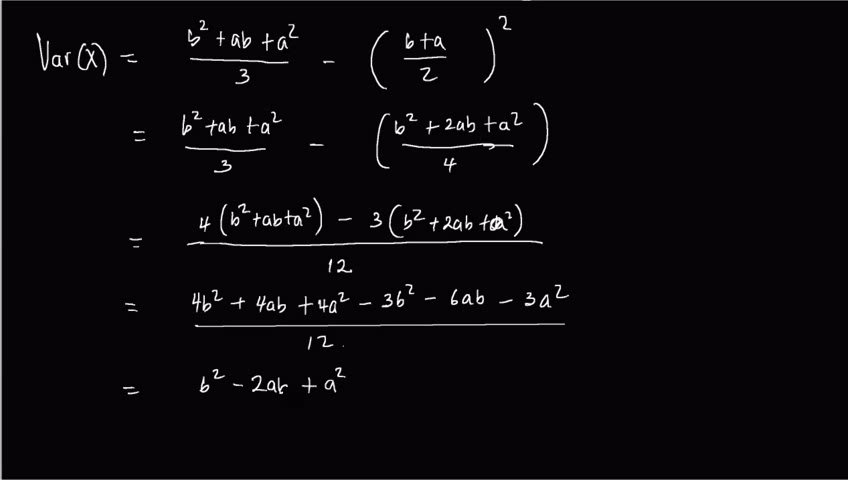 Var(X) = b² + ab + a² / 3 - ( b+a / 2 )²
= b² + ab + a² / 3 - ( b² + 2ab + a² / 4 )
= 4(b² + ab + a²) - 3(b² + 2ab + a²) / 12
= 4b² + 4ab + 4a² - 3b² - 6ab - 3a² / 12
= b² - 2ab + a²